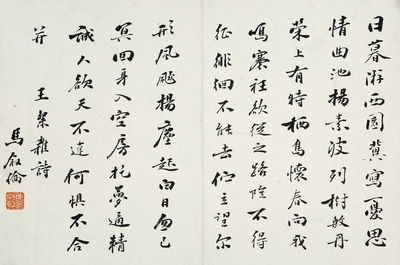 日暮游西園冀寫憂思
情曲池揚素波列樹敷丹
榮上有特栖鳥懷春向我
鳴褰衽欲從之路險不得
征徘徊不能去佇立望爾
形風飈揚塵起白日忽已
冥回身入空房托夢通精
誠人欲天不違何懼不合
并 王粲雜詩
馬叙倫